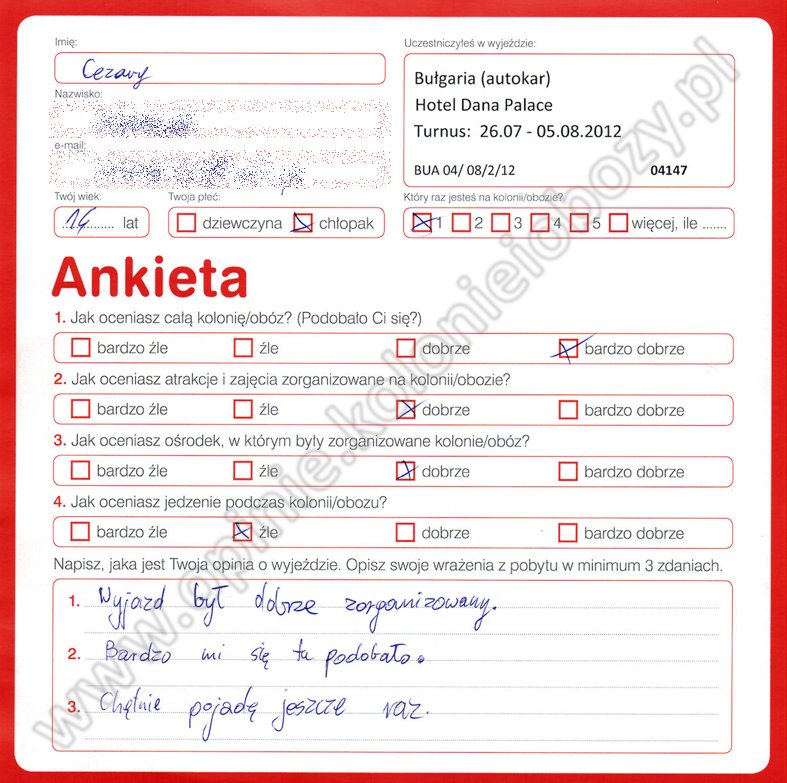 Imię:
Cezary
Uczestniczyłeś w wyjeździe:
Bułgaria (autokar)
Hotel Dana Palace
Turnus: 26.07 - 05.08.2012
BUA 04/ 08/2/12 04147
Nazwisko:
e-mail:
Twój wiek:
14 lat
Twoja płeć:
dziewczyna chłopak
Który raz jesteś na kolonii/obozie?
1 2 3 4 5 więcej, ile .......
Ankieta
1. Jak oceniasz całą kolonię/obóz? (Podobało Ci się?)
bardzo źle źle dobrze bardzo dobrze
2. Jak oceniasz atrakcje i zajęcia zorganizowane na kolonii/obozie?
bardzo źle źle dobrze bardzo dobrze
3. Jak oceniasz ośrodek, w którym były zorganizowane kolonie/obóz?
bardzo źle źle dobrze bardzo dobrze
4. Jak oceniasz jedzenie podczas kolonii/obozu?
bardzo źle źle dobrze bardzo dobrze
Napisz, jaka jest Twoja opinia o wyjeździe. Opisz swoje wrażenia z pobytu w minimum 3 zdaniach.
1. Wyjazd był dobrze zorganizowany.
2. Bardzo mi się tu podobało.
3. Chętnie pojadę jeszcze raz.
www.opinie.kolonieiobozy.pl